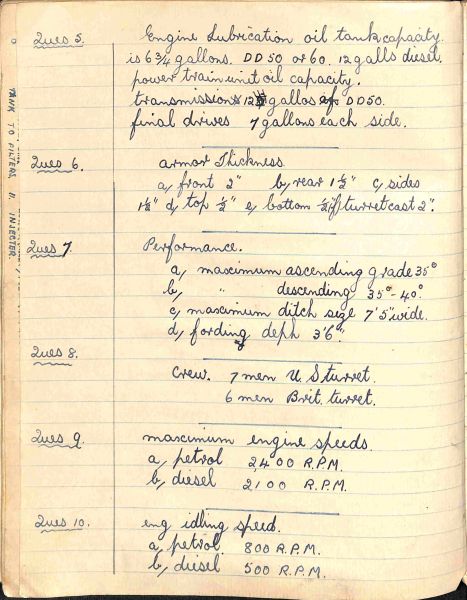 Ques 5. Engine Lubrication oil tank capacity.
is 6 3/4 gallons. DD50 or 60. 12 galls diesel.
power train unit oil capacity.
transmissions 12 gallos of DD50.
final drives 7 gallons each side.
Ques 6. armor Thickness
a, front 2" b, rear 1 1/2" c, sides
1 1/2" d, top 1/2" e, bottom 1/2" f, turret cast 2".
Ques 7 Performance.
a, maximum ascending grade 35°
b, " descending 35° - 40°.
c, maximum ditch size 7'5" wide.
d, fording deph 3'6".
Ques 8.
Crew. 7 men U.S turret.
6 men Brit. turret.
Ques 9. maximum engine speeds.
a, petrol 2400 R.P.M.
b, diesel 2100 R.P.M.
Ques 10. eng idling speed.
a, petrol 800 R.P.M.
b, diesel 500 R.P.M.
TANK TO FILTERS. 11. INJECTER.